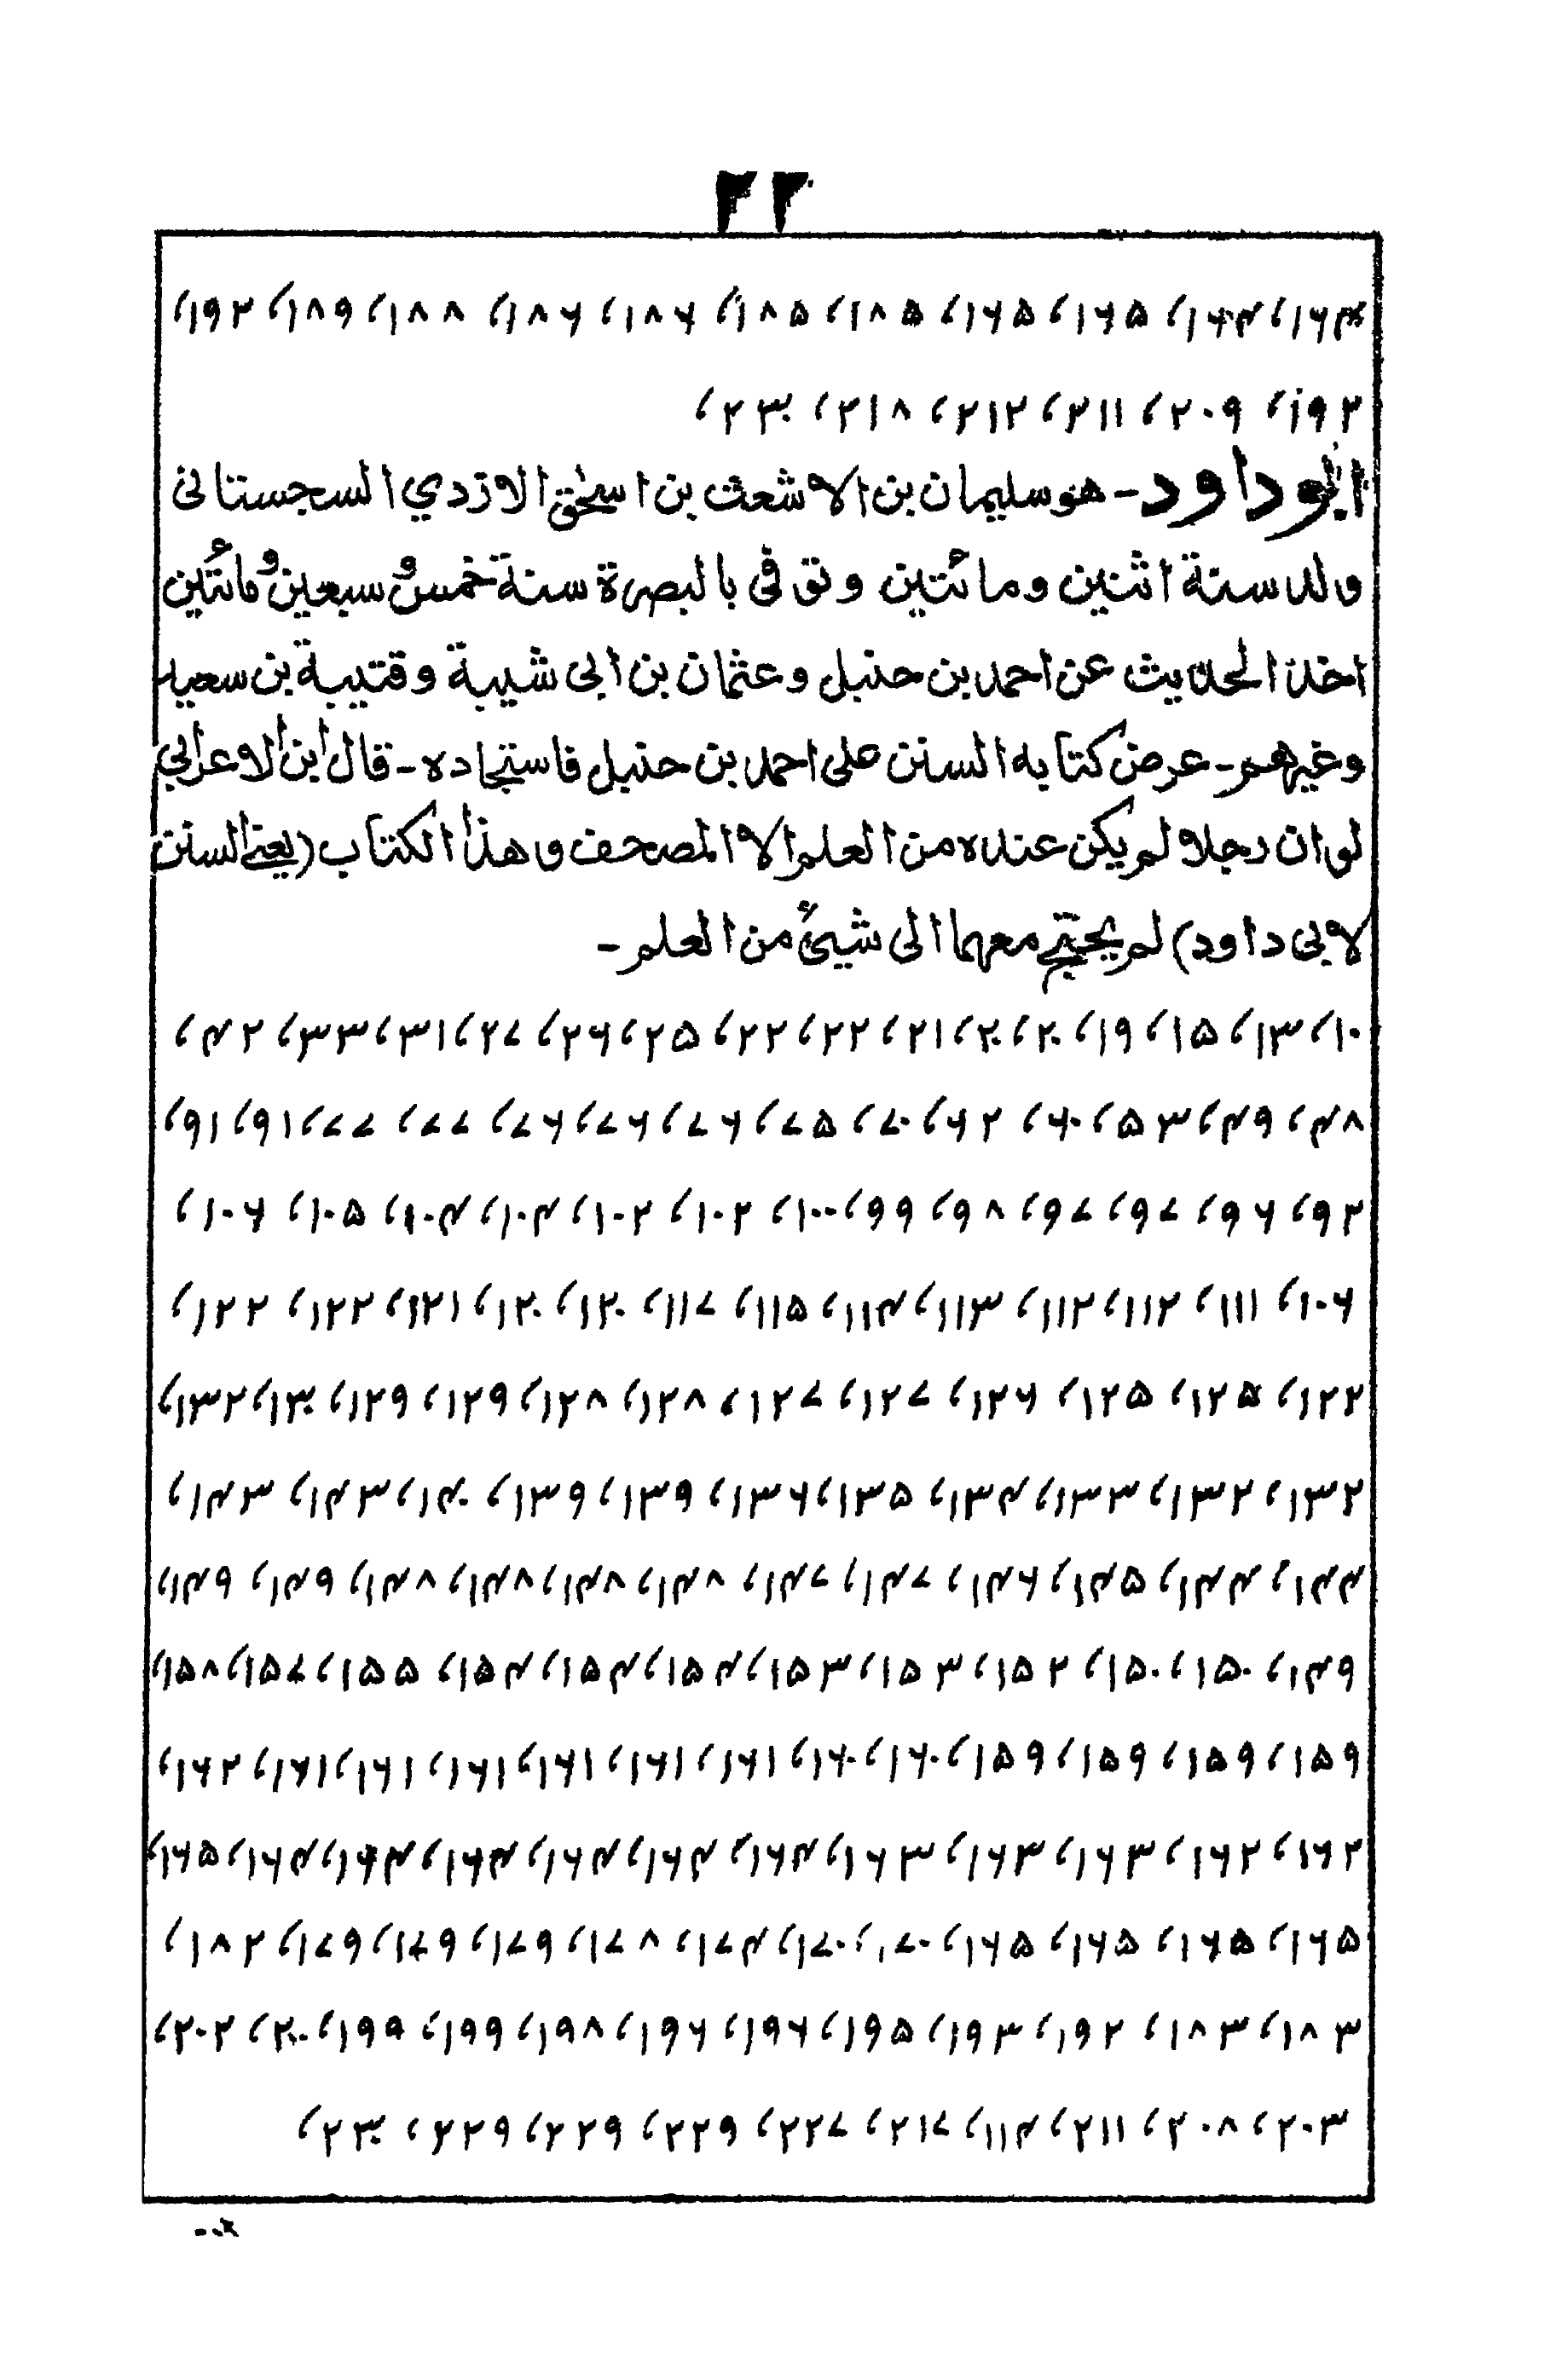 ۲۲
۱۶۴، ۱۶۴، ۱۶۵، ۱۶۵، ۱۸۵، ۱۸۵، ۱۸۶، ۱۸۶، ۱۸۸، ۱۸۹، ۱۹۲،
۱۹۲، ۲۰۹، ۲۱۱، ۲۱۲، ۲۱۸، ۲۳۰،
ابوداود - هو سليمان بن الاشعث بن اسحٰق الازدي السجستانى
ولد سنة اثنين ومائتين وتوفى بالبصرة سنة خمس وسبعين ومائتين
اخذ الحديث عن احمد بن حنبل وعثمان بن ابى شيبة وقتيبة بن سعيد
وغيرهم - عرض كتابه السنن على احمد بن حنبل فاستجاده - قال ابن الاعرابي
لو ان رجلا لم يكن عنده من العلم الا المصحف وهذا الكتاب (يعنى السنن
لابى داود) لم يحتج معهما الى شيئ من العلم -
۱۰، ۱۳، ۱۵، ۱۹، ۲۰، ۲۰، ۲۱، ۲۲، ۲۲، ۲۵، ۲۶، ۲۷، ۳۱، ۳۳، ۴۲،
۴۸، ۴۹، ۵۳، ۶۰، ۶۲، ۷۰، ۷۵، ۷۶، ۷۶، ۷۶، ۷۷، ۷۷، ۹۱، ۹۱،
۹۲، ۹۶، ۹۷، ۹۷، ۹۸، ۹۹، ۱۰۰، ۱۰۲، ۱۰۲، ۱۰۴، ۱۰۴، ۱۰۵، ۱۰۶،
۱۰۶، ۱۱۱، ۱۱۲، ۱۱۲، ۱۱۳، ۱۱۴، ۱۱۵، ۱۱۷، ۱۲۰، ۱۲۰، ۱۲۱، ۱۲۲، ۱۲۲،
۱۲۲، ۱۲۵، ۱۲۵، ۱۲۶، ۱۲۷، ۱۲۷، ۱۲۸، ۱۲۸، ۱۲۹، ۱۲۹، ۱۳۰، ۱۳۲،
۱۳۲، ۱۳۲، ۱۳۳، ۱۳۴، ۱۳۵، ۱۳۶، ۱۳۹، ۱۳۹، ۱۴۰، ۱۴۳، ۱۴۳،
۱۴۴، ۱۴۴، ۱۴۵، ۱۴۶، ۱۴۷، ۱۴۷، ۱۴۸، ۱۴۸، ۱۴۸، ۱۴۸، ۱۴۹، ۱۴۹،
۱۴۹، ۱۵۰، ۱۵۰، ۱۵۲، ۱۵۳، ۱۵۳، ۱۵۴، ۱۵۴، ۱۵۴، ۱۵۵، ۱۵۷، ۱۵۸،
۱۵۹، ۱۵۹، ۱۵۹، ۱۵۹، ۱۶۰، ۱۶۰، ۱۶۱، ۱۶۱، ۱۶۱، ۱۶۱، ۱۶۱، ۱۶۱، ۱۶۲،
۱۶۲، ۱۶۲، ۱۶۳، ۱۶۳، ۱۶۳، ۱۶۴، ۱۶۴، ۱۶۴، ۱۶۴، ۱۶۴، ۱۶۴، ۱۶۵،
۱۶۵، ۱۶۵، ۱۶۵، ۱۶۵، ۱۷۰، ۱۷۰، ۱۷۴، ۱۷۸، ۱۷۹، ۱۷۹، ۱۷۹، ۱۸۲،
۱۸۳، ۱۸۳، ۱۹۲، ۱۹۳، ۱۹۵، ۱۹۶، ۱۹۶، ۱۹۸، ۱۹۹، ۱۹۹، ۲۰۰، ۲۰۲،
۲۰۳، ۲۰۸، ۲۱۱، ۱۱۴، ۲۱۷، ۲۲۷، ۲۲۹، ۲۲۹، ۲۲۹، ۲۳۰،